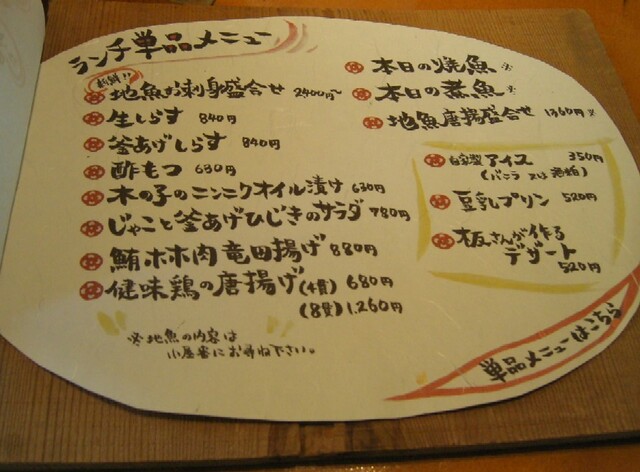 ランチ単品メニュー
新鮮!!
地魚お刺身盛合せ 2400円~
生しらす 840円
釜あげしらす 840円
酢もつ 630円
木の子のニンニクオイル漬け 630円
じゃこと釜あげひじきのサラダ 780円
鮪ホホ肉竜田揚げ 880円
健味鶏の唐揚げ(4貫) 680円
(8貫) 1,260円
※地魚の内容は
小屋番にお尋ね下さい。
本日の焼魚※
本日の煮魚※
地魚唐揚盛合せ 1360円※
自家製アイス 350円
(バニラ 又は 酒粕)
豆乳プリン 520円
板さんが作る
デザート
520円
単品メニューはこちら